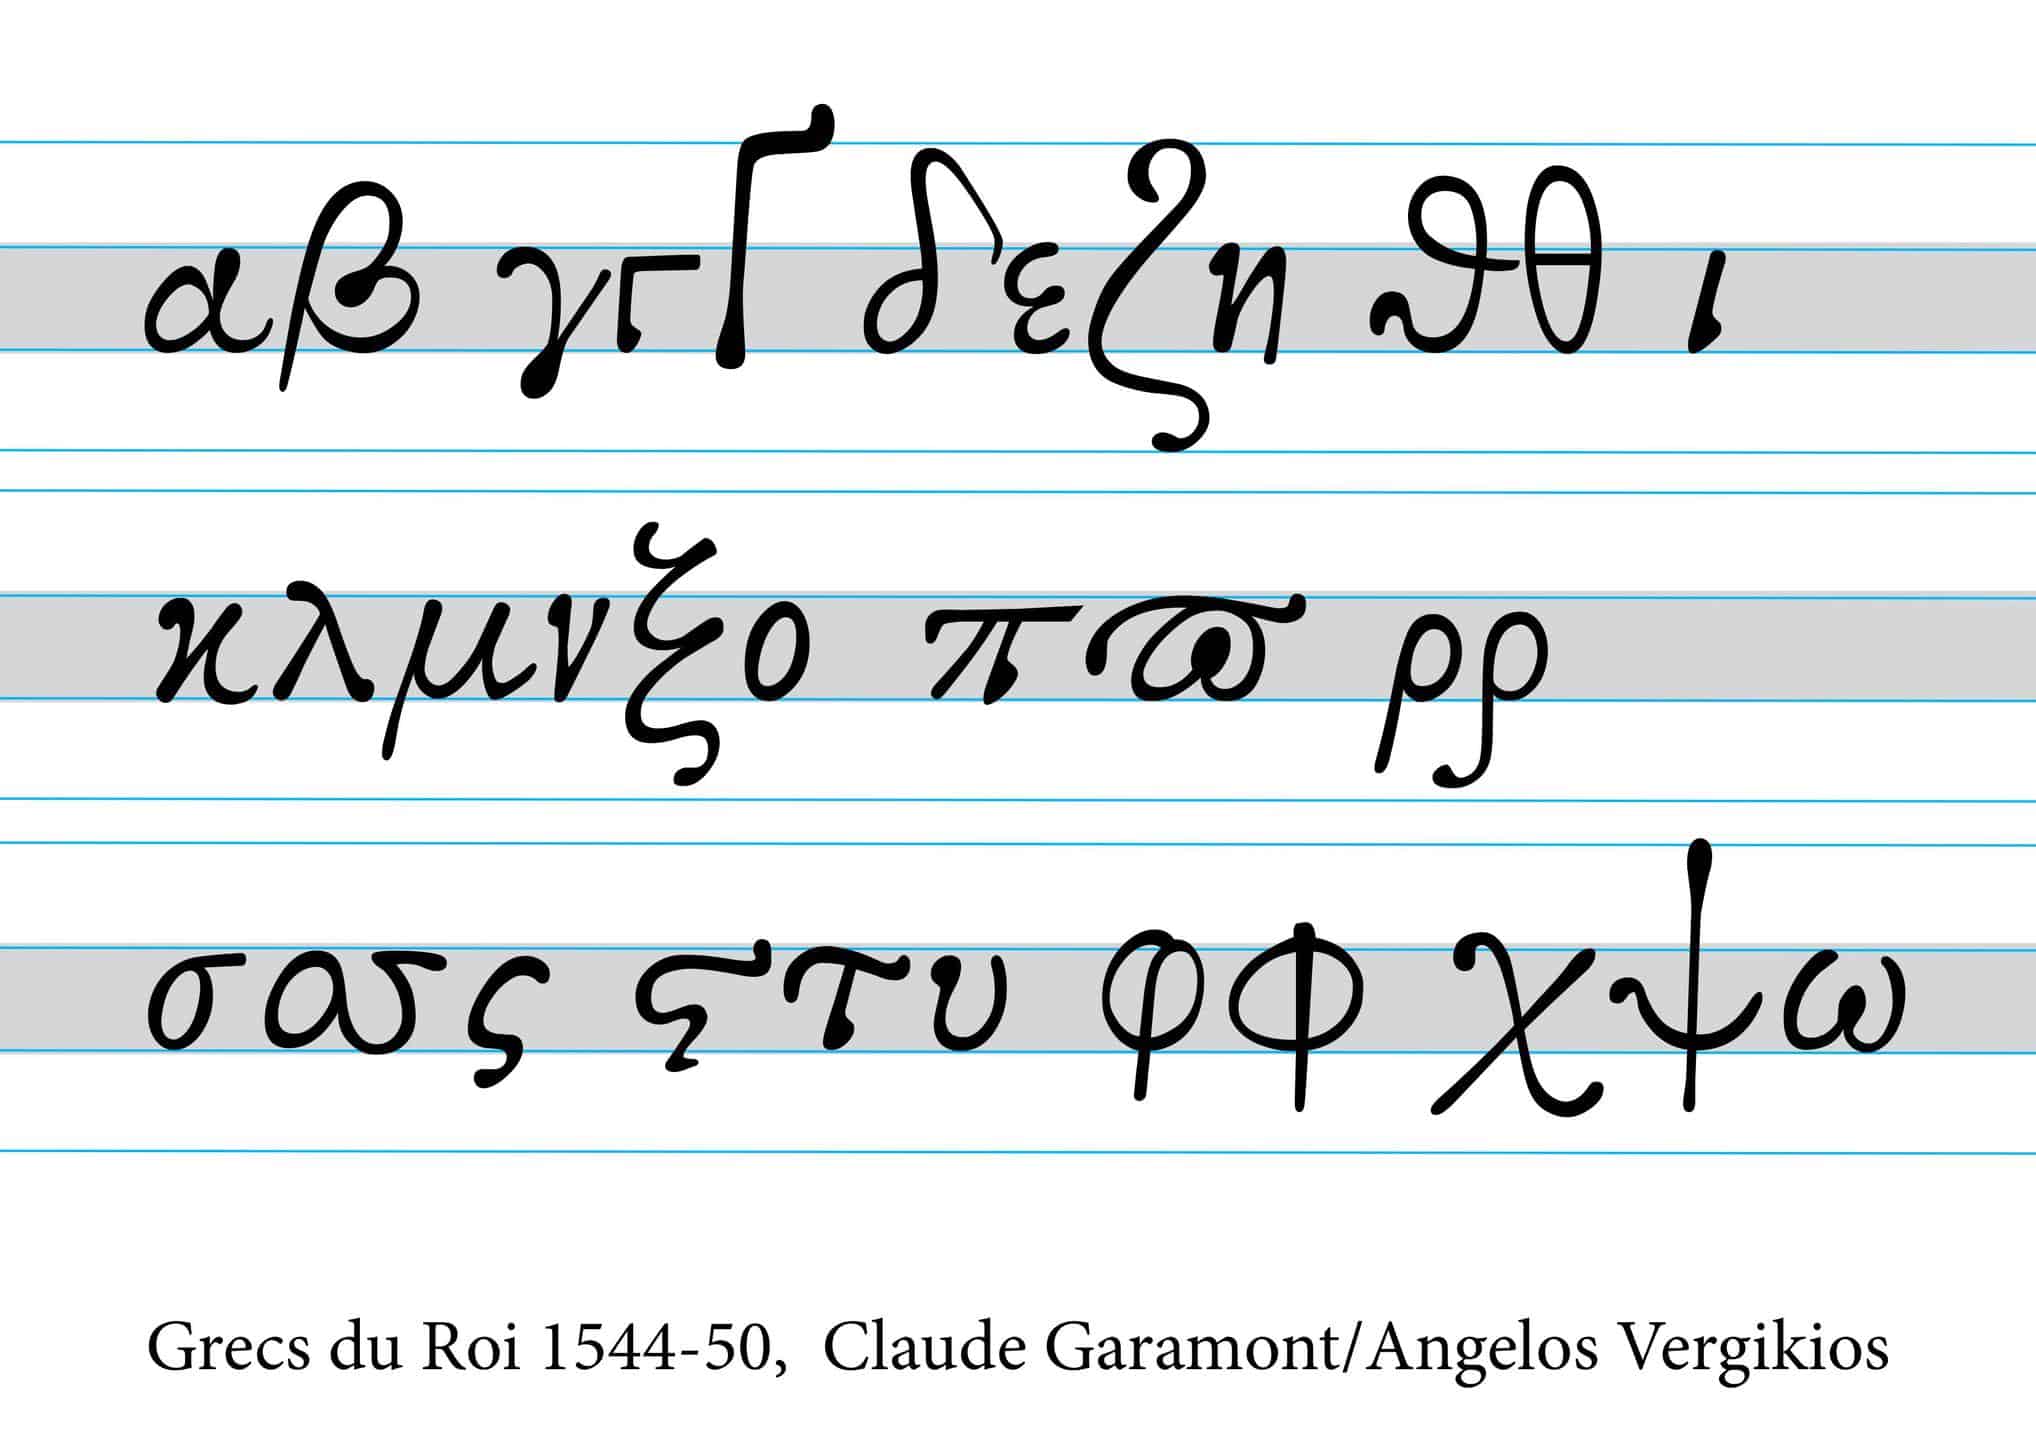 αβ γγΓ δεζη ϑθ ι
κλμνξο πϖ ρρ
σσς ςτυ φφ χψω
Grecs du Roi 1544-50, Claude Garamont/Angelos Vergikios